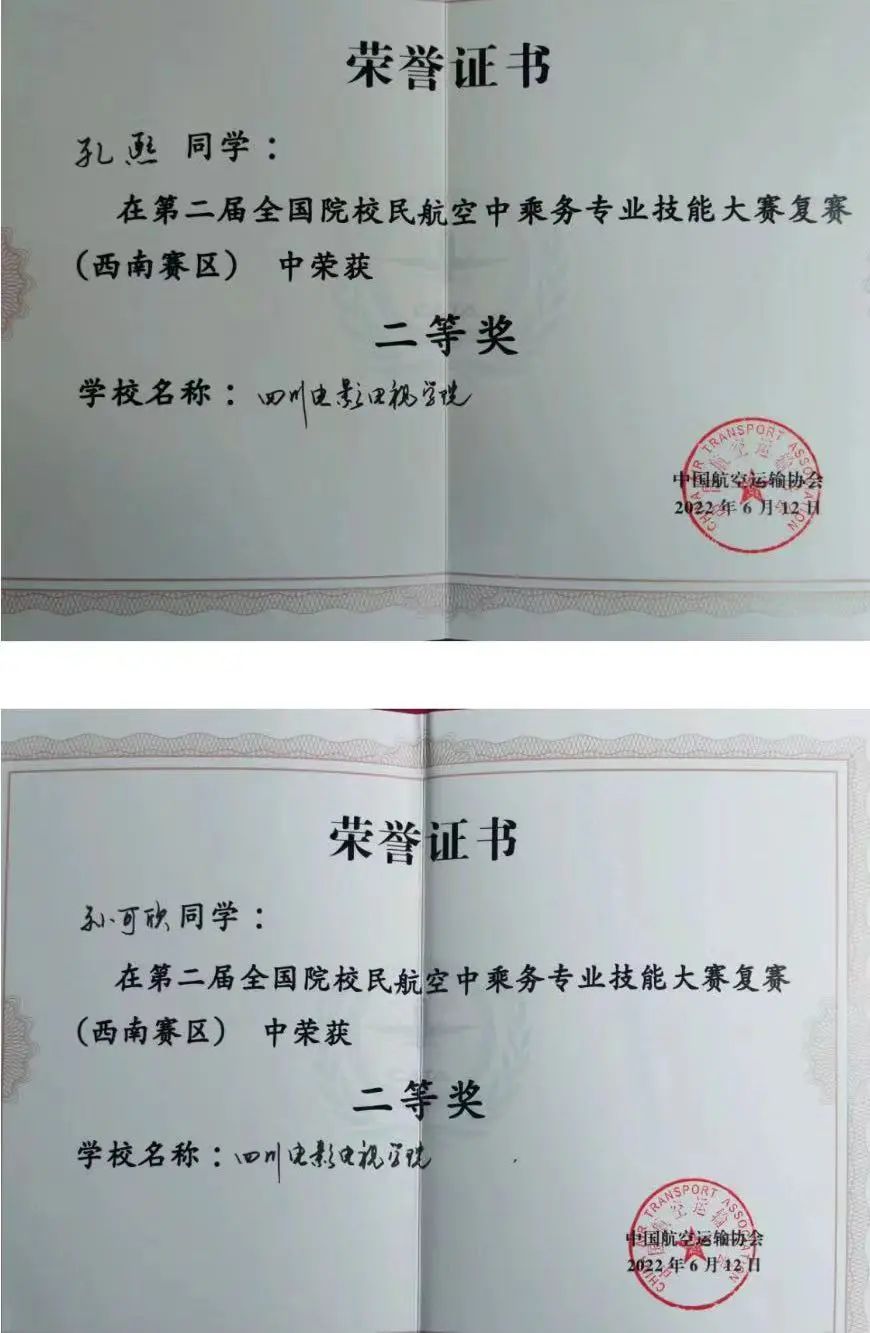 荣誉证书
孔熙 同学：
在第二届全国院校民航空中乘务专业技能大赛复赛
(西南赛区) 中荣获
二等奖
学校名称：四川电影电视学院
CHINA AIR TRANSPORT ASSOCIATION
中国航空运输协会
中国航空运输协会
2022年6月12日
荣誉证书
孙可欣同学：
在第二届全国院校民航空中乘务专业技能大赛复赛
(西南赛区) 中荣获
二等奖
学校名称：四川电影电视学院
CHINA AIR TRANSPORT ASSOCIATION
中国航空运输协会
中国航空运输协会
2022年6月12日